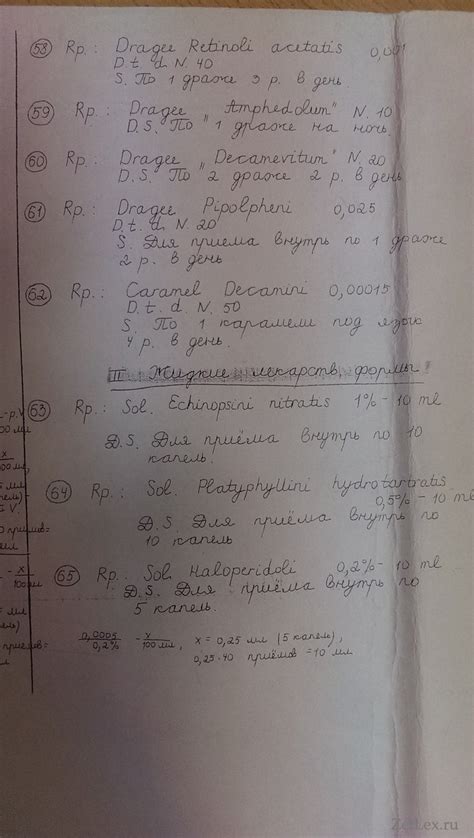 58 Rp.: Dragee Retinoli acetatis 0,001
D. t. d. N. 40
S. По 1 драже 3 р. в день.
59 Rp.: Dragee "Amphedolum" N. 10
D. S. По 1 драже на ночь.
60 Rp.: Dragee „Decamevitum" N. 20
D. S. По 2 драже 2 р. в день
61 Rp.: Dragee Pipolpheni 0,025
D. t. d. N. 20
S. Для приема внутрь по 1 драже
2 р. в день
62 Rp.: Caramel Decamini 0,00015
D. t. d. N. 50
S. По 1 карамели под язык
4 р. в день.
III Жидкие лекарств. формы
63 Rp.: Sol. Echinopsini nitratis 1% - 10 ml
D. S. Для приёма внутрь по 10
капель.
64 Rp.: Sol. Platyphyllini hydrotartratis
0,5% - 10 ml
D. S. Для приёма внутрь по
10 капель
65 Rp.: Sol. Haloperidoli 0,2% - 10 ml
D. S. Для приёма внутрь по
5 капель.
0,0005/0,2% - x/100 мл, x = 0,25 мл (5 капель),
0,25·40 приёмов = 10 мл
ZdLex.ru